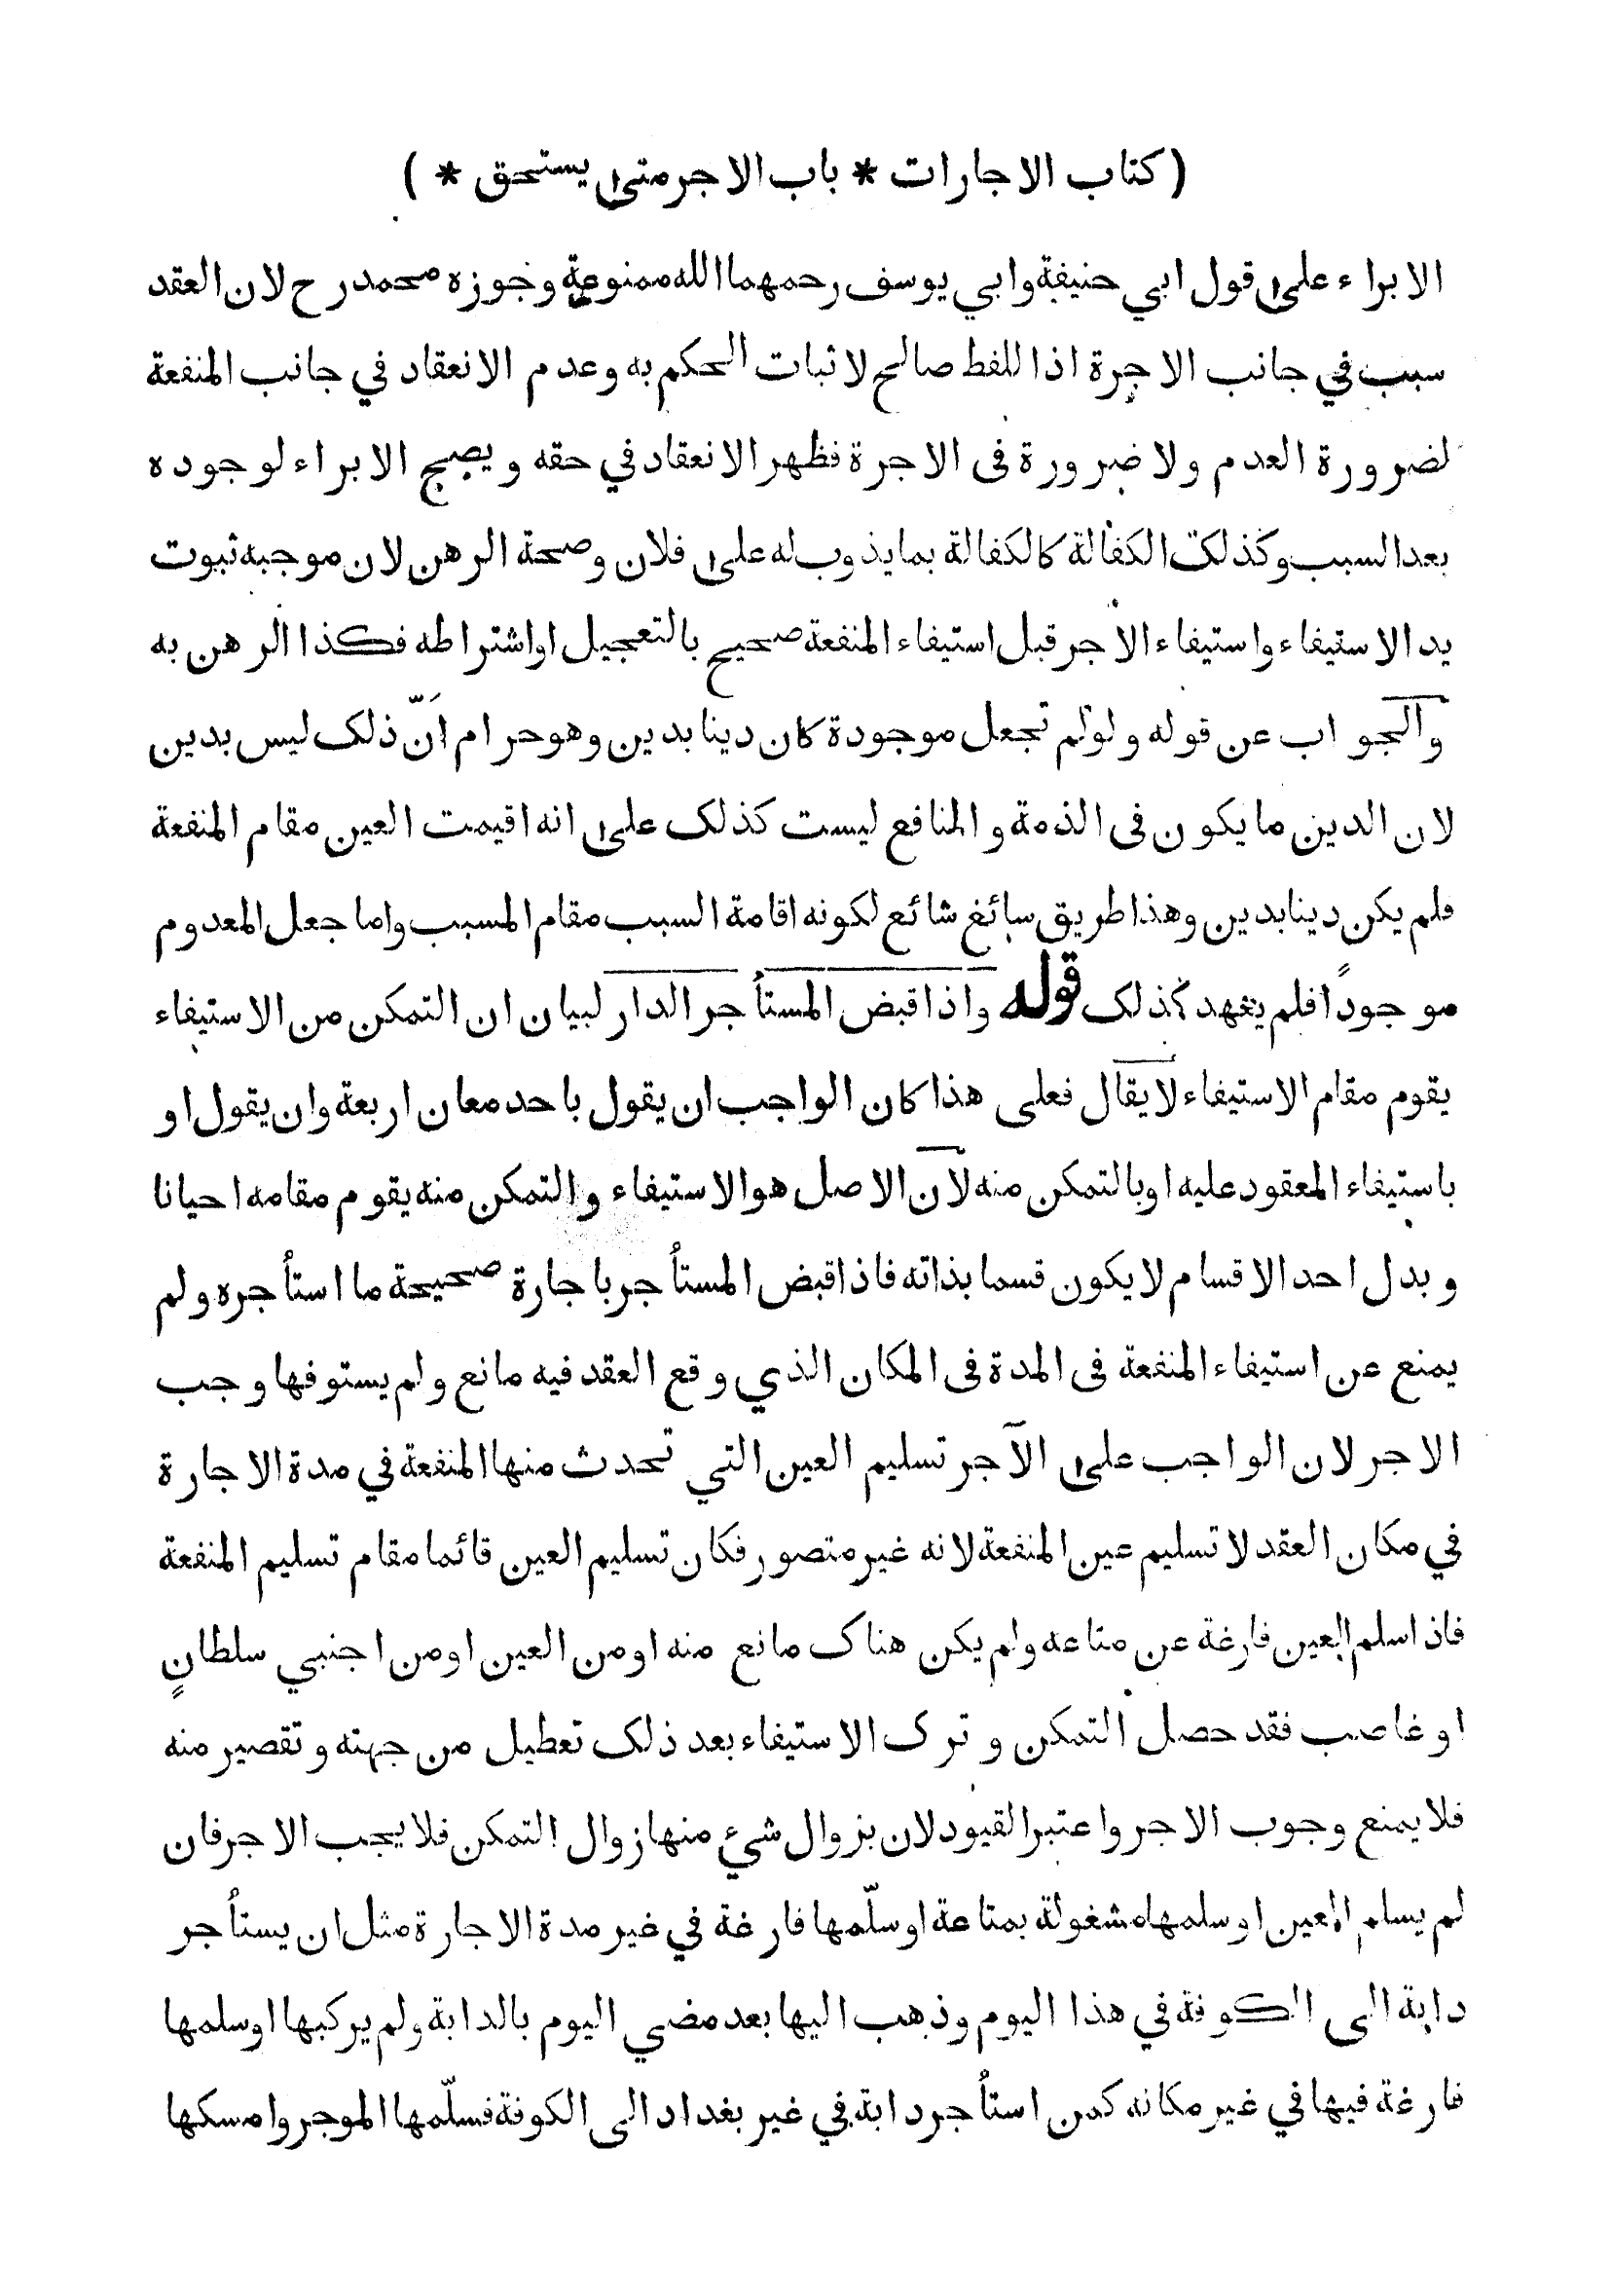 ( كتاب الاجارات * باب الاجر متى يستحق * )
الابراء على قول ابي حنيفة وابي يوسف رحمهما الله ممنوعة وجوزه محمد رح لان العقد
سبب في جانب الاجرة اذ اللفظ صالح لاثبات الحكم به وعدم الانعقاد في جانب المنفعة
لضرورة العدم ولا ضرورة فى الاجرة فظهر الانعقاد في حقه ويصح الابراء لوجوده
بعد السبب وكذلك الكفالة كالكفالة بما يذوب له على فلان وصحة الرهن لان موجبه ثبوت
يد الاستيفاء واستيفاء الاجر قبل استيفاء المنفعة صحيح بالتعجيل او اشتراطه فكذا الرهن به
والجواب عن قوله ولو لم تجعل موجودة كان دينا بدين وهو حرام اَنّ ذلك ليس بدين
لان الدين ما يكون فى الذمة والمنافع ليست كذلك على انه اقيمت العين مقام المنفعة
فلم يكن دينا بدين وهذا طريق سائغ شائع لكونه اقامة السبب مقام المسبب واما جعل المعدوم
موجوداً فلم يعهد كذلك قوله واذا قبض المستأجر الدار لبيان ان التمكن من الاستيفاء
يقوم مقام الاستيفاء لا يقال فعلى هذا كان الواجب ان يقول باحد معان اربعة وان يقول او
باستيفاء المعقود عليه او بالتمكن منه لان الاصل هو الاستيفاء والتمكن منه يقوم مقامه احيانا
وبدل احد الاقسام لا يكون قسما بذاته فاذا قبض المستأجر باجارة صحيحة ما استأجره ولم
يمنع عن استيفاء المنفعة فى المدة فى المكان الذي وقع العقد فيه مانع ولم يستوفها وجب
الاجر لان الواجب على الآجر تسليم العين التي تحدث منها المنفعة في مدة الاجارة
في مكان العقد لا تسليم عين المنفعة لانه غير متصور فكان تسليم العين قائما مقام تسليم المنفعة
فاذا سلم العين فارغة عن متاعه ولم يكن هناك مانع منه او من العين او من اجنبي سلطانٍ
او غاصب فقد حصل التمكن وترك الاستيفاء بعد ذلك تعطيل من جهته وتقصير منه
فلا يمنع وجوب الاجر واعتبر القيود لان بزوال شيء منها زوال التمكن فلا يجب الاجر فان
لم يسلم العين او سلمها مشغولة بمتاعة او سلّمها فارغة في غير مدة الاجارة مثل ان يستأجر
دابة الى الكوفة في هذا اليوم وذهب اليها بعد مضي اليوم بالدابة ولم يركبها او سلمها
فارغة فيها في غير مكانه كمن استأجر دابة في غير بغداد الى الكوفة فسلّمها الموجر وامسكها